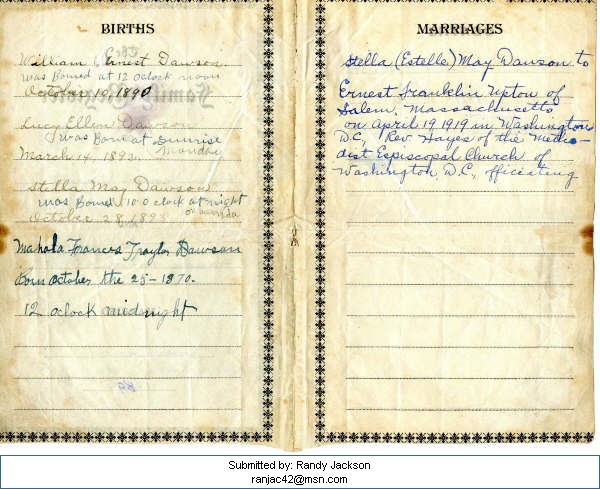 BIRTHS
William Ernest Dawson
was Borned at 12 oclock noon
October 10, 1890
Lucy Ellen Dawson
was Born at Sunrise
Monday
March 14, 1892.
Stella May Dawson
was Borned 10 0 clock at night
October 28, 1895
Mahala Frances Traylor Dawson
Born October the 25 - 1870.
12 oclock midnight
MARRIAGES
Stella (Estelle) May Dawson to
Ernest Franklin Upton of
Salem, Massachusetts
on April 19 1919 in Washington
D.C., Rev Hayes of the Metho-
dist Espiscopal Church of
Washington, D.C., officiating
Submitted by: Randy Jackson
ranjac42@msn.com